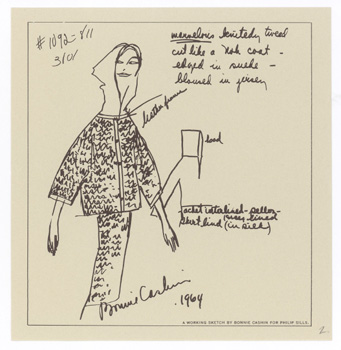 #1092-811
marvelous knitedy tweed
cut like a Noh coat -
edged in suede -
bloused in jersey
leather
hood
jacket interlined -
skirt lined (in silk)
Bonnie Cashin
.1964
A WORKING SKETCH BY BONNIE CASHIN FOR PHILIP SILLS.
2.